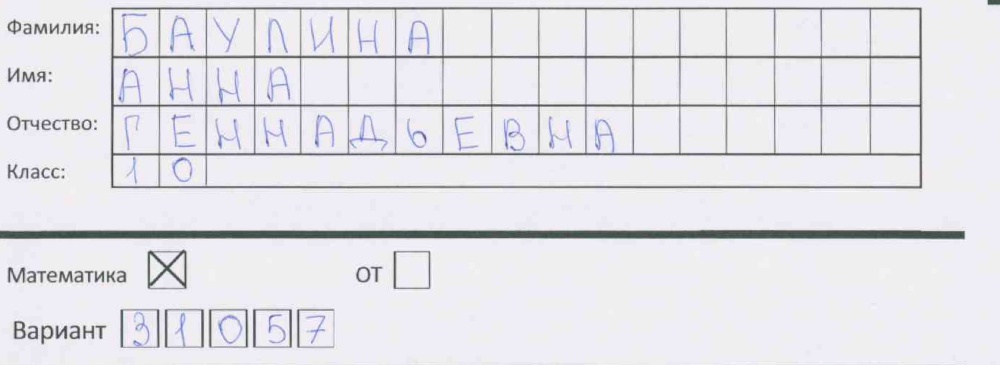 Фамилия: БАУЛИНА
Имя: АННА
Отчество: ГЕННАДЬЕВНА
Класс: 10
Математика ☒ ОТ ☐
Вариант 31057